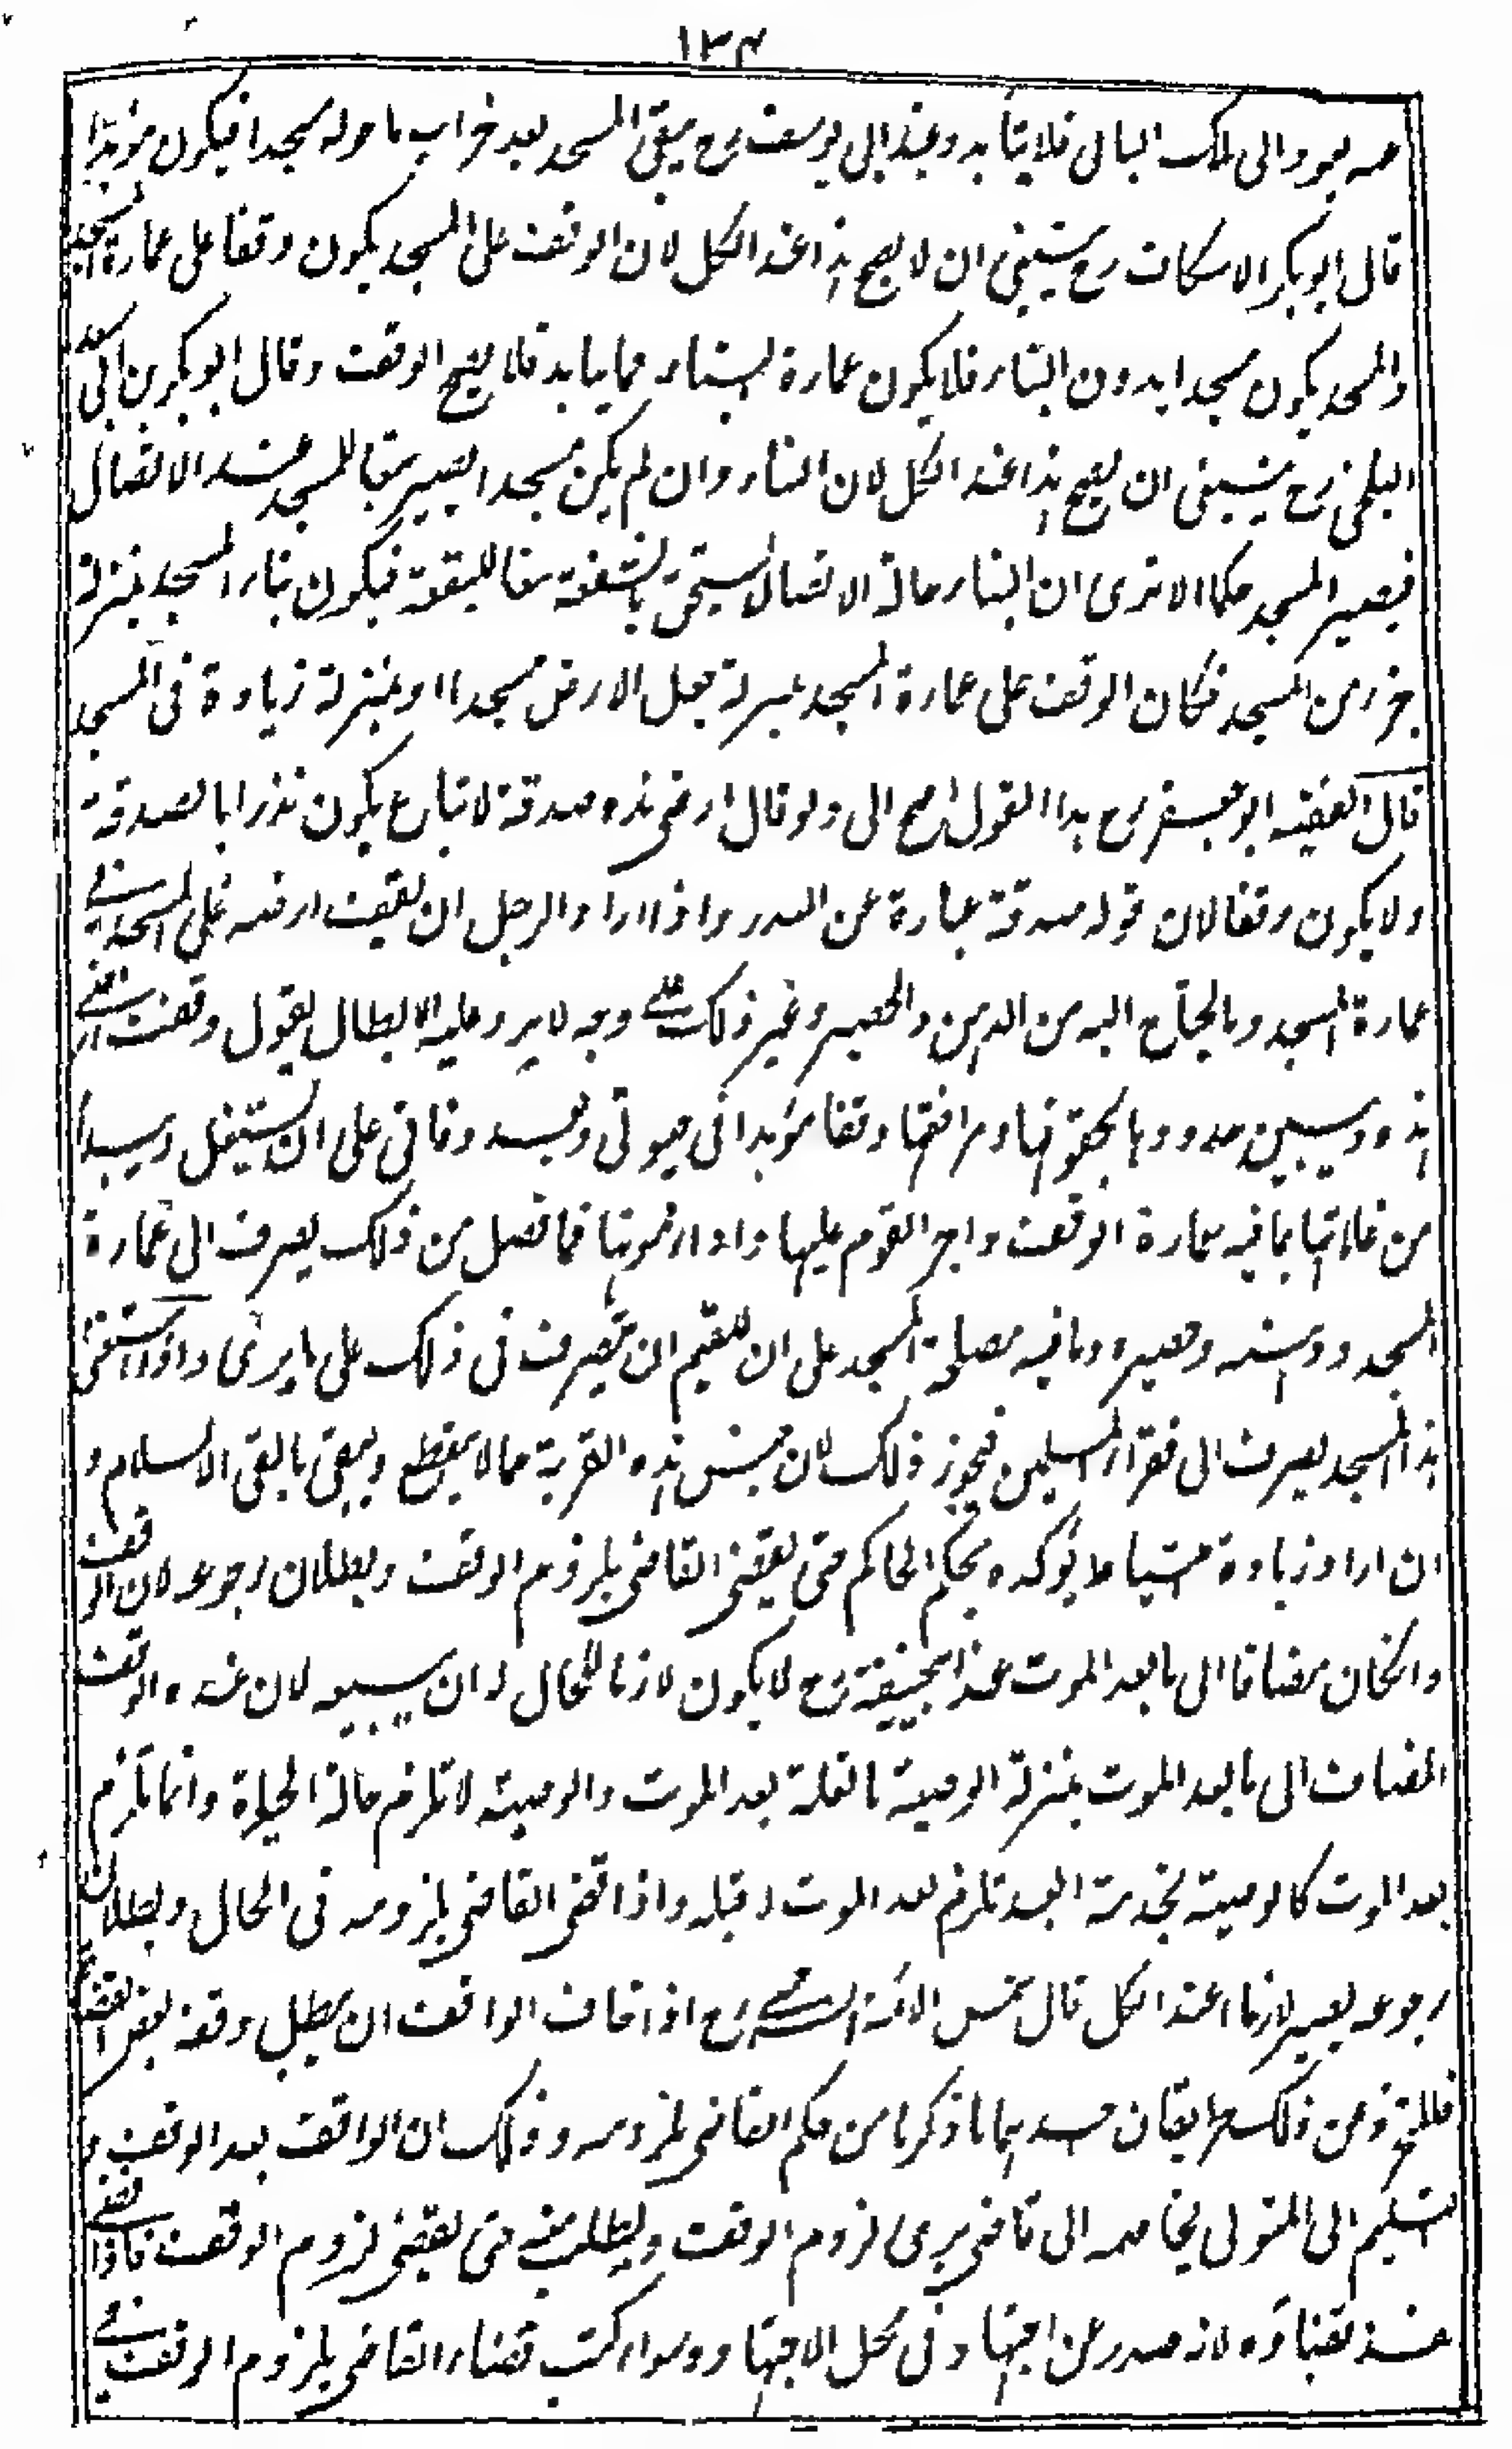 ١٣٤
عنده يعود الى ملك البانى فلا يتأبد وعند ابى يوسف رح يبقى المسجد بعد خراب ما حوله مسجدا فيكون مؤبدا
قال ابو بكر الاسكاف رح ينبغى ان لا يصح هذا عند الكل لان الوقف على المسجد يكون وقفا على عمارة المسجد
والمسجد يكون مسجدا بدون البناء فلا يكون عمارة البناء مما يتابد فلا يصح الوقف وقال ابو بكر بن ابى سعد
البلخى رح ينبغى ان يصح هذا عند الكل لان البناء وان لم يكن مسجدا يصير تبعا للمسجد عند الاتصال
فيصير المسجد حكما الا ترى ان البناء حالة الاتصال يستحق بالشفعة تبعا للبقعة فيكون بناء المسجد بمنزلة
جزء من المسجد فكان الوقف على عمارة المسجد بمنزلة جعل الارض مسجدا او بمنزلة زيادة فى المسجد
قال الفقيه ابو جعفر رح هذا القول اصح الى ولو قال ارضى هذه صدقة لا تباع يكون نذرا بالصدقة
ولا يكون وقفا لان قوله صدقة عبارة عن النذر واذا اراد الرجل ان يقف ارضه على المسجد فى
عمارة المسجد وما يحتاج اليه من الدهن والحصير وغير ذلك على وجه لا يرد عليه الابطال يقول وقفت ارضى
هذه ويبين حدودها بحقوقها ومرافقها وقفا مؤبدا فى حيوتى وبعد وفاتى على ان يستغل ويبدأ
من غلاتها بما فيه عمارة الوقف واجر القوم عليها واداء مؤنها فما فضل من ذلك يصرف الى عمارة
المسجد ودهنه وحصيره وما فيه مصلحة المسجد على ان للقيم ان يتصرف فى ذلك على ما يرى واذا استغنى
هذا المسجد يصرف الى فقراء المسلمين فيجوز ذلك لان جنس هذه القربة مما لا ينقطع ويبقى ما بقى الاسلام و
ان اراد زيادة احتياط يؤكده بحكم الحاكم حتى يقضى القاضى بلزوم الوقف وبطلان رجوعه لان الوقف
وان كان مضافا الى ما بعد الموت عند ابى حنيفة رح لا يكون لازما للحال له ان يبيعه لان عنده الوقف
المضاف الى ما بعد الموت بمنزلة الوصية بالغلة بعد الموت والوصية لا تلزم حالة الحياة وانما تلزم
بعد الموت كالوصية بخدمة العبد تلزم بعد الموت لا قبله واذا قضى القاضى بلزومه فى الحال وبطلان
رجوعه يصير لازما عند الكل قال شمس الائمة السرخسى رح اذا خاف الواقف ان يبطل وقفه بعض القضاة
فللتحرز عن ذلك طريقان احدهما ما ذكرنا من حكم القاضى بلزومه وذلك ان الواقف بعد الوقف و
التسليم الى المتولى يخاصمه الى قاضى يرى لزوم الوقف ويطلب منه حتى يقضى لزوم الوقف فاذا قضى
نفذ قضاؤه لانه صدر عن اجتهاد فى محل الاجتهاد وسواء كتب قضاء القاضى بلزوم الوقف فى